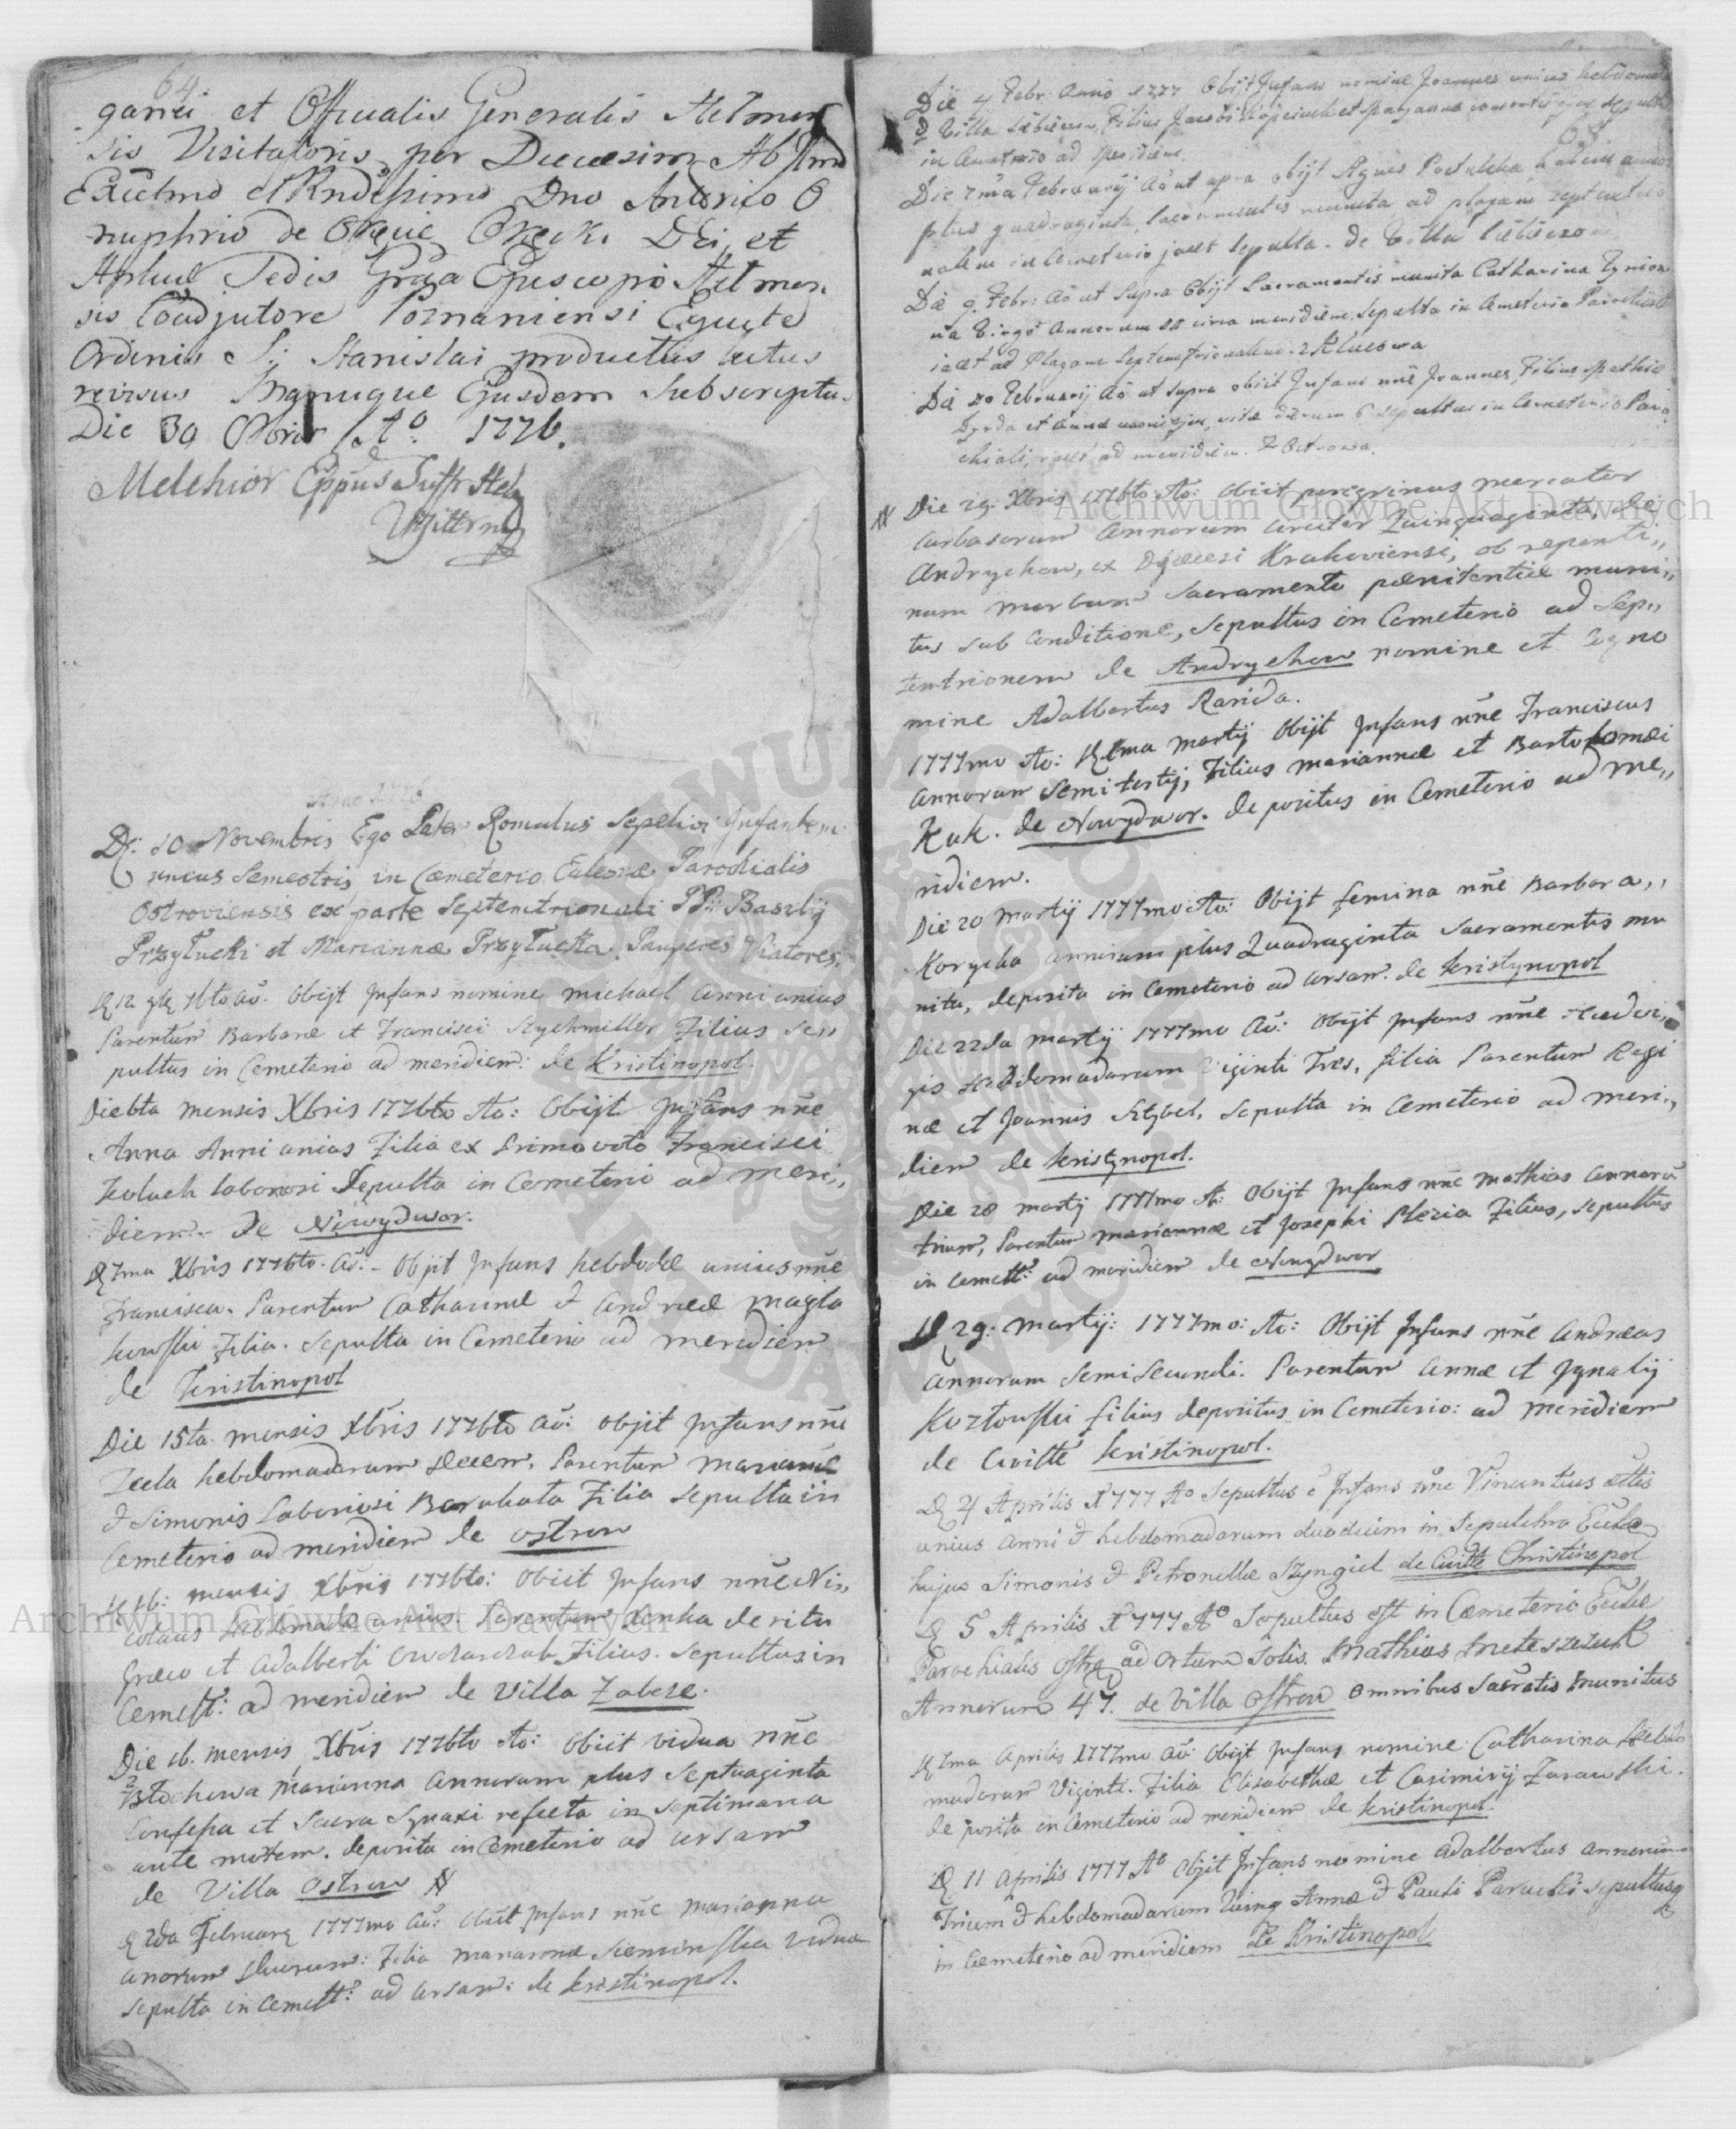 64.
ganei et Officialis Generalis Chelmen
sis Visitatoris per Dioecesim Ab Illmo
Excelmo et Rndissimo Dno Antonio O
nuphrio de Okęcie Okęcki Dei et
Aplicae Sedis Gratia Episcopo Chelmen
sis Coadjutore Posnaniensi Equite
Ordinis S. Stanislai productus lectus
revisus Manuque Ejusdem Subscriptus
Die 30 Obris Ao 1776.
Melchior Eppus Suffr
Anno 1776
D: 10 Novembris Ego Pater Romulus Sepelivi Infantem
unius Semestris in Caemeterio Eclesiae Parochialis
Ostroviensis ex parte Septemtrionali PP: Basilij
Przyłucki et Mariannae Przyłucka. Pauperes Viatores.
D 12 9br 76to Ao. Obijt Infans nomine Michael Anni unius
Parentum Barbarae et Francisci Stychmiller Filius Se,,
pultus in Cemeterio ad meridiem: de Kristinopol.
Die 6ta mensis Xbris 1776to Ao: Obijt Infans nne
Anna Anni unius Filia ex primo voto Francisci
Woluch laboriosi Sepulta in Cemeterio ad meri,,
diem. De Nowydwor.
D 7ma Xbris 1776to Ao: Obijt Infans hebdodae unius nne
Francisca. Parentum Catharinae et Andreae Magla
kowski Filia. Sepulta in Cemeterio ad meridiem
de Kristinopol
Die 15ta mensis Xbris 1776to Ao: Objit Infans nne
Tecla hebdomadarum Decem. Parentum Mariannae
et Simonis Laboriosi Barabata Filia Sepulta in
Cemeterio ad meridiem de Ostrow
D 16: mensis Xbris 1776to: Obiit Infans nne Ni,,
colaus hebdomadae unius. Parentum Xenka de ritu
Graeco et Adalberti Filius. Sepultus in
Cemett: ad meridiem de Villa Zabcze.
Die 16. mensis Xbris 1776to Ao: Obiit vidua nne
Marianna Annorum plus Septuaginta
Confessa et Sacra Synaxi refecta in Septimana
ante mortem. deposita in Cemeterio ad ursam
de Villa Ostrow #
D 2da February 1777mo Ao: Obiit Infans nne Marianna
anorum duorum: Filia Mariannae Sieminska Vidua
Sepulta in Cemett: ad ursam: de Kristinopol.
Die 4 Febr: Anno 1777 Obijt Infans nomine Joannes unius hebdomad
in Cemeterio ad Meridiem.
Die 7ma Februarij Ao ut supra obijt Agnes
plus quadraginta, Sacramentis munita ad plagam septentrio
nalem in Cemeterio jacet Sepulta. de Villa
Die 9. Febr: Ao ut Supra Obijt Sacramentis munita Catharina
na Virgo Annorum circa meridiem Sepulta in Cemeterio Parochiali
iacet ad Plagam Septemtrionalem.
Die 10 Februarij Ao ut Supra obiit Infans nne Joannes, Filius
et Anna vitae dierum 6 sepultus in Cemeterio Paro
chiali, jacet ad meridiem. Z Ostrowa.
# Die 29. Xbris 1776to Ao: Obiit peregrinus mercator
Carbasorum Annorum circiter Quinquaginta, de
Andrychow, ex Dioecesi Krakoviensi, ob repenti,,
num morbum Sacramento paenitentiae muni,,
tus sub conditione, Sepultus in Cemeterio ad Sep,,
temtrionem de Andrychow nomine et Cogno
mine Adalbertus Ranida.
1777mo Ao: Martij Obijt Infans nne Franciscus
Annorum Semitertij, Filius Mariannae et Bartolomaei
Kuk. de Nowydwor. depositus in Cemeterio ad me,,
ridiem.
Die 20 Martij 1777mo Ao: Obijt femina nne Barbara,,
Korycka annorum plus Quadraginta Sacramentis mu
nita, deposita in Cemeterio ad ursam. de Kristynopol
Die 22da Martij 1777mo Ao: Obijt Infans nne Hedvi,,
gis Hebdomadarum Viginti Tres, filia Parentum Regi
nae et Joannis Sztybel, Sepulta in Cemeterio ad meri,,
diem de Kristynopol.
Die 28 Martij 1777mo Ao: Obijt Infans nne Mathias Annorum
trium, Parentum Mariannae et Josephi Filius, Sepultus
in Cemett: ad meridiem de Nowydwor
D 29. Martij: 1777mo: Ao: Obijt Infans nne Andreas
Annorum Semisecundi. Parentum Annae et Ignatij
Kozłowski filius depositus in Cemeterio: ad meridiem
de Civitte Kristinopol.
D 4 Aprilis 1777 Ao Sepultus e Infans nne Vincentius aetatis
unius anni et hebdomadarum duodecim in Sepulchro Ecclae
hujus Simonis et Petronellae Szyngiel de Civitte Christinopol
D 5 Aprilis 1777 Ao Sepultus est in Caemeterio Ecclae
Parochialis Ostro ad Ortum Solis. Mathias
Annorum 47. de Villa Ostrow Omnibus Sacratis Munitus
D 7ma Aprilis 1777mo Ao: Obijt Infans nomine Catharina Hebdo
madarum Viginti. Filia Elisabethae et Casimirij Zarawski.
deposita in Cemeterio ad meridiem de Kristinopol.
D 11 Aprilis 1777 Ao Objit Infans nomine Adalbertus annorum
Trium et hebdomadarum Annae et Pauli sepultus
in Caemeterio ad meridiem De Kristinopol
Archiwum Główne Akt Dawnych
Archiwum Główne Akt Dawnych